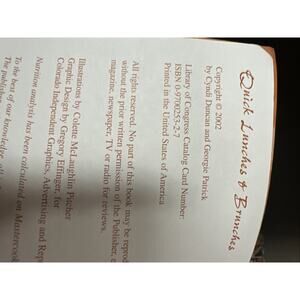 Quick Lunches & Brunches
Copyright © 2002
by Cyndi Duncan and Georgie Patrick
Library of Congress Catalog Card Number:
ISBN 0-9700253-2-7
Printed in the United States of America
All rights reserved. No part of this book may be reprod
without the prior written permission of the Publisher, e
magazine, newspaper, TV or radio for reviews.
Illustrations by Colette McLaughlin Pitcher
Graphic Design by Gregory Effinger, for
Colorado Independent Graphics, Advertising and Rep
Nutrition analysis has been calculated on Mastercook
To the best of our knowledge all
The publisher